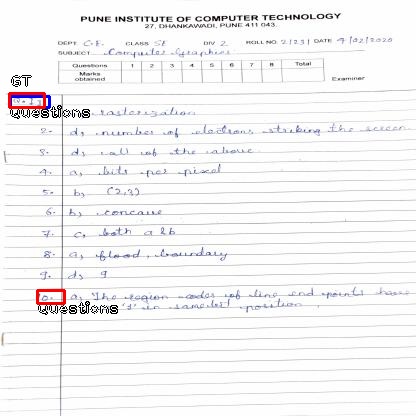 PUNE INSTITUTE OF COMPUTER TECHNOLOGY
27, DHANKAWADI, PUNE 411 043.
DEPT C.E. CLASS SE DIV 2 ROLL NO. 2123 DATE 4/02/2020
SUBJECT Computer Graphics
Questions 1 2 3 4 5 6 7 8 Total
Marks obtained
Examiner
GT
Questions
rasterization
2. d, number of electrons striking the screen
3. d, all of the above
4. a, bits per pixel
5. b, (2,3)
6. b, concave
7. c, both a & b
8. a, flood, boundary
9. d, 9
0. a, The region codes of line end points have
'1' in same bit position
Questions